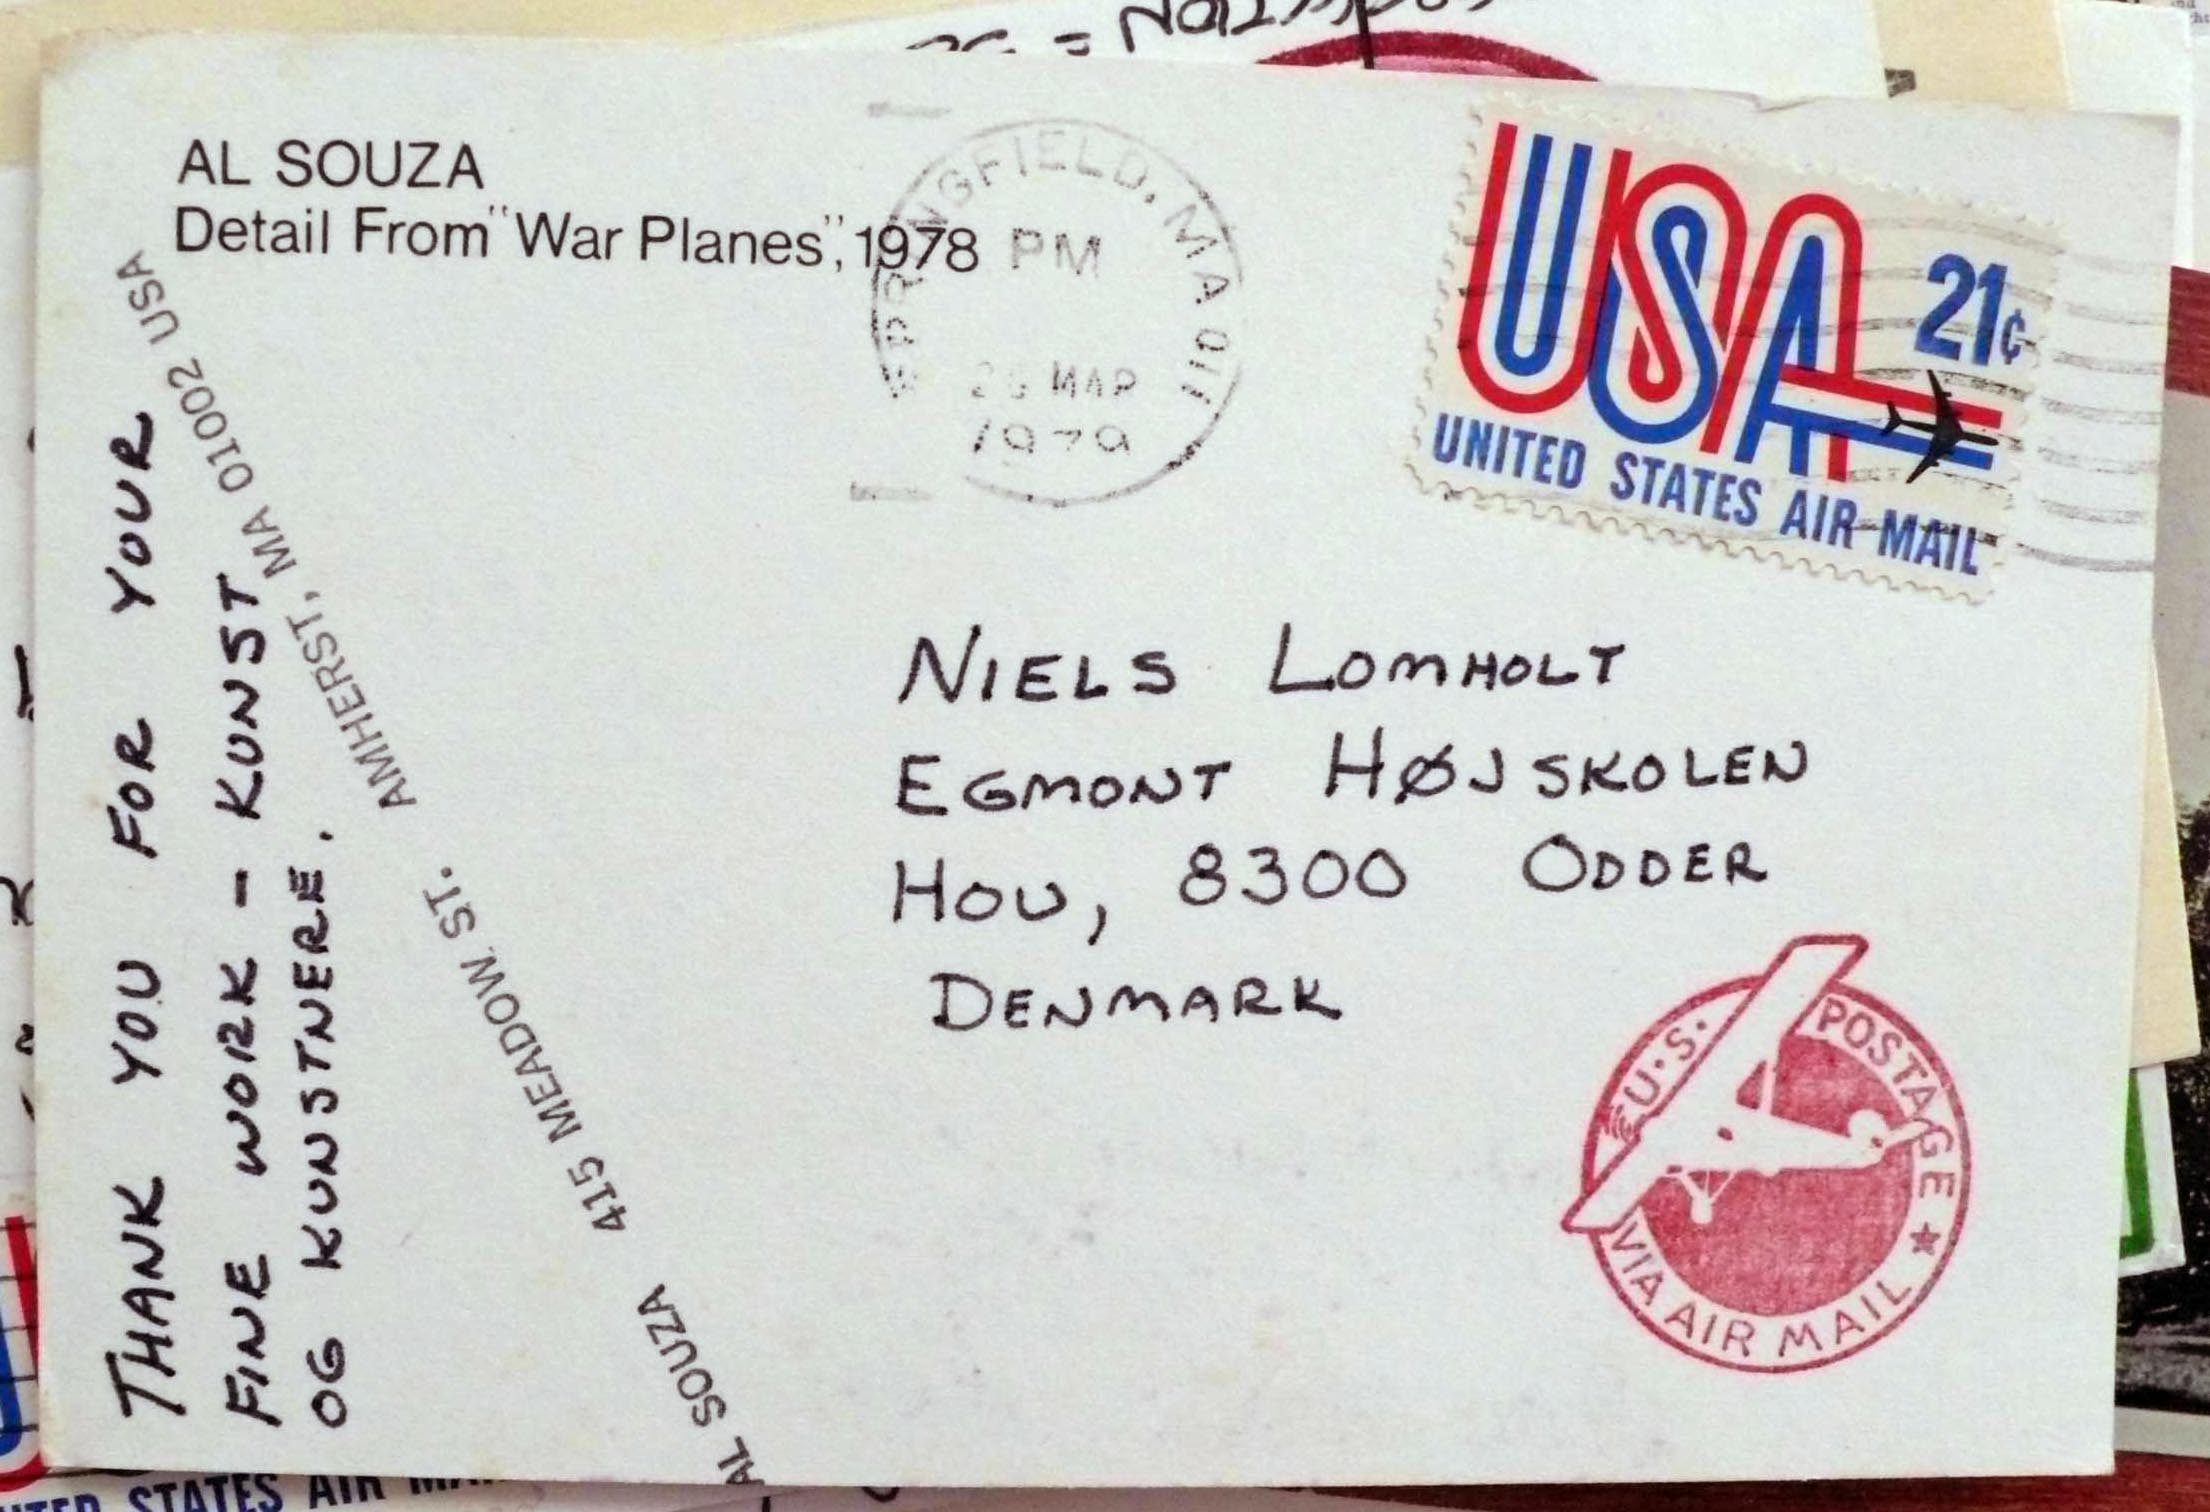 AL SOUZA
Detail From "War Planes", 1978
SPRINGFIELD, MA 011
PM
MAR
1979
USA 21¢
UNITED STATES AIR MAIL
THANK YOU FOR YOUR
FINE WORK - KUNST
OG KUNSTNERE.
AL SOUZA 415 MEADOW ST. AMHERST, MA 01002 USA
NIELS LOMHOLT
EGMONT HØJSKOLEN
HOU, 8300 ODDER
DENMARK
U.S. POSTAGE ★
VIA AIR MAIL
STATES AIR